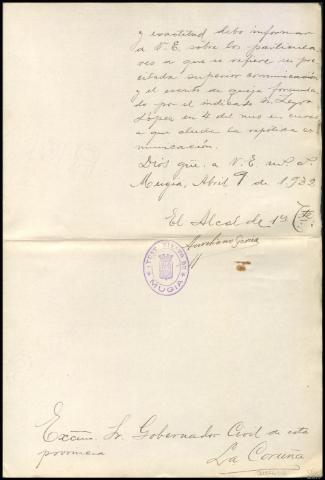 y exactitud debo informar
a V. E. sobre los particula-
res a que se refiere su pre-
citada superior comunicación
y el escrito de queja formula-
do por el indicado Sr. Leyra
López en 4 del mes en curso
a que alude la repetida co-
municación.
Dios gûe. a V. E. m. a.
Mugia, Abril 9 de 1932
El Alcalde 1er Tte
MUGIA
Excmo. Sr. Gobernador Civil de esta
provincia
La Coruña